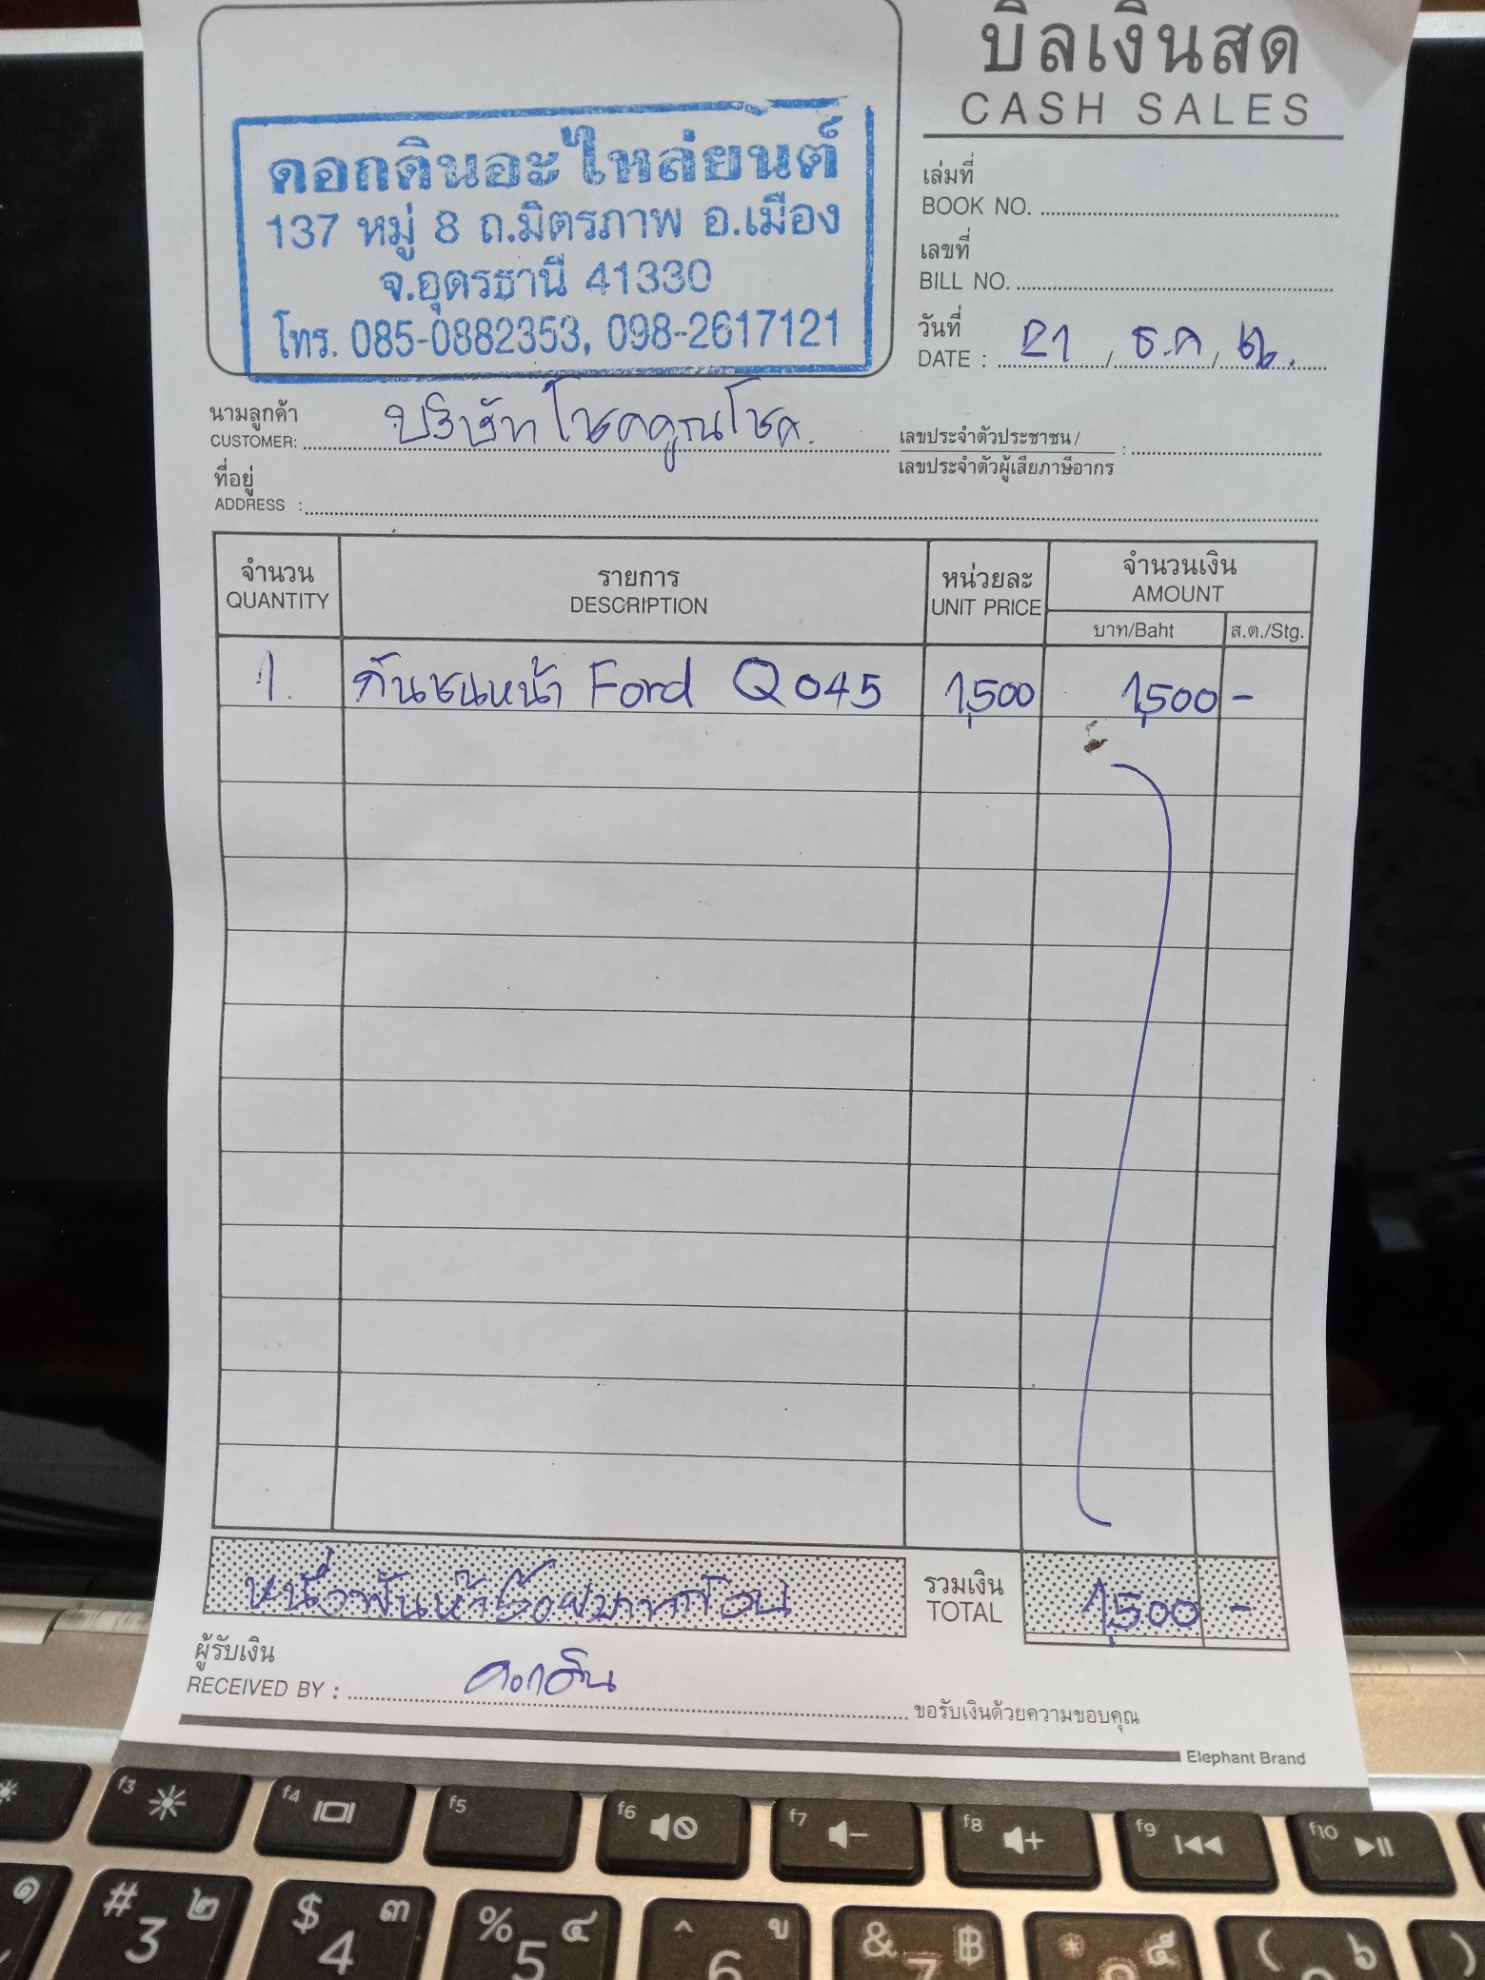 บิลเงินสด
CASH SALES
ดอกดินอะไหล่ยนต์
137 หมู่ 8 ถ.มิตรภาพ อ.เมือง
จ.อุดรธานี 41330
โทร. 085-0882353, 098-2617121
เล่มที่
BOOK NO.
เลขที่
BILL NO.
วันที่
DATE : 21 / ธ.ค /
นามลูกค้า
CUSTOMER: บริษัทโชคคูณโชค.
เลขประจำตัวประชาชน /
เลขประจำตัวผู้เสียภาษีอากร :
ที่อยู่
ADDRESS :
จำนวน รายการ หน่วยละ จำนวนเงิน
QUANTITY DESCRIPTION UNIT PRICE AMOUNT
บาท/Baht ส.ต./Stg.
1. กันชนหน้า Ford Q045 1,500 1,500 -
หนึ่งพันห้าร้อยบาทถ้วน รวมเงิน
TOTAL 1,500 -
ผู้รับเงิน
RECEIVED BY : ดอกดิน ขอรับเงินด้วยความขอบคุณ
Elephant Brand
f3 f4 f5 f6 f7 f8 f9 f10
๑ # ๒ $ ๓ % ๔ ^ ข & ฿ * ๕ ( ๖ )
3 4 5 6 7